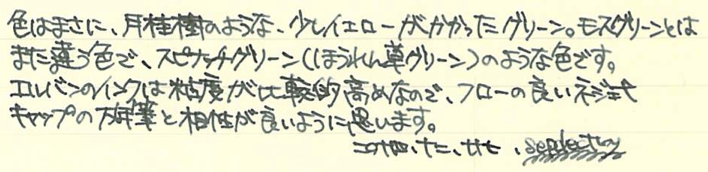 色はまさに、月桂樹のような、少しイエローがかかったグリーン。モスグリーンとは
また違う色で、スピナッチグリーン(ほうれん草グリーン)のような色です。
エルバンのインクは粘度が比較的高めなので、フローの良いネジ式
キャップの万年筆と相性が良いように思います。